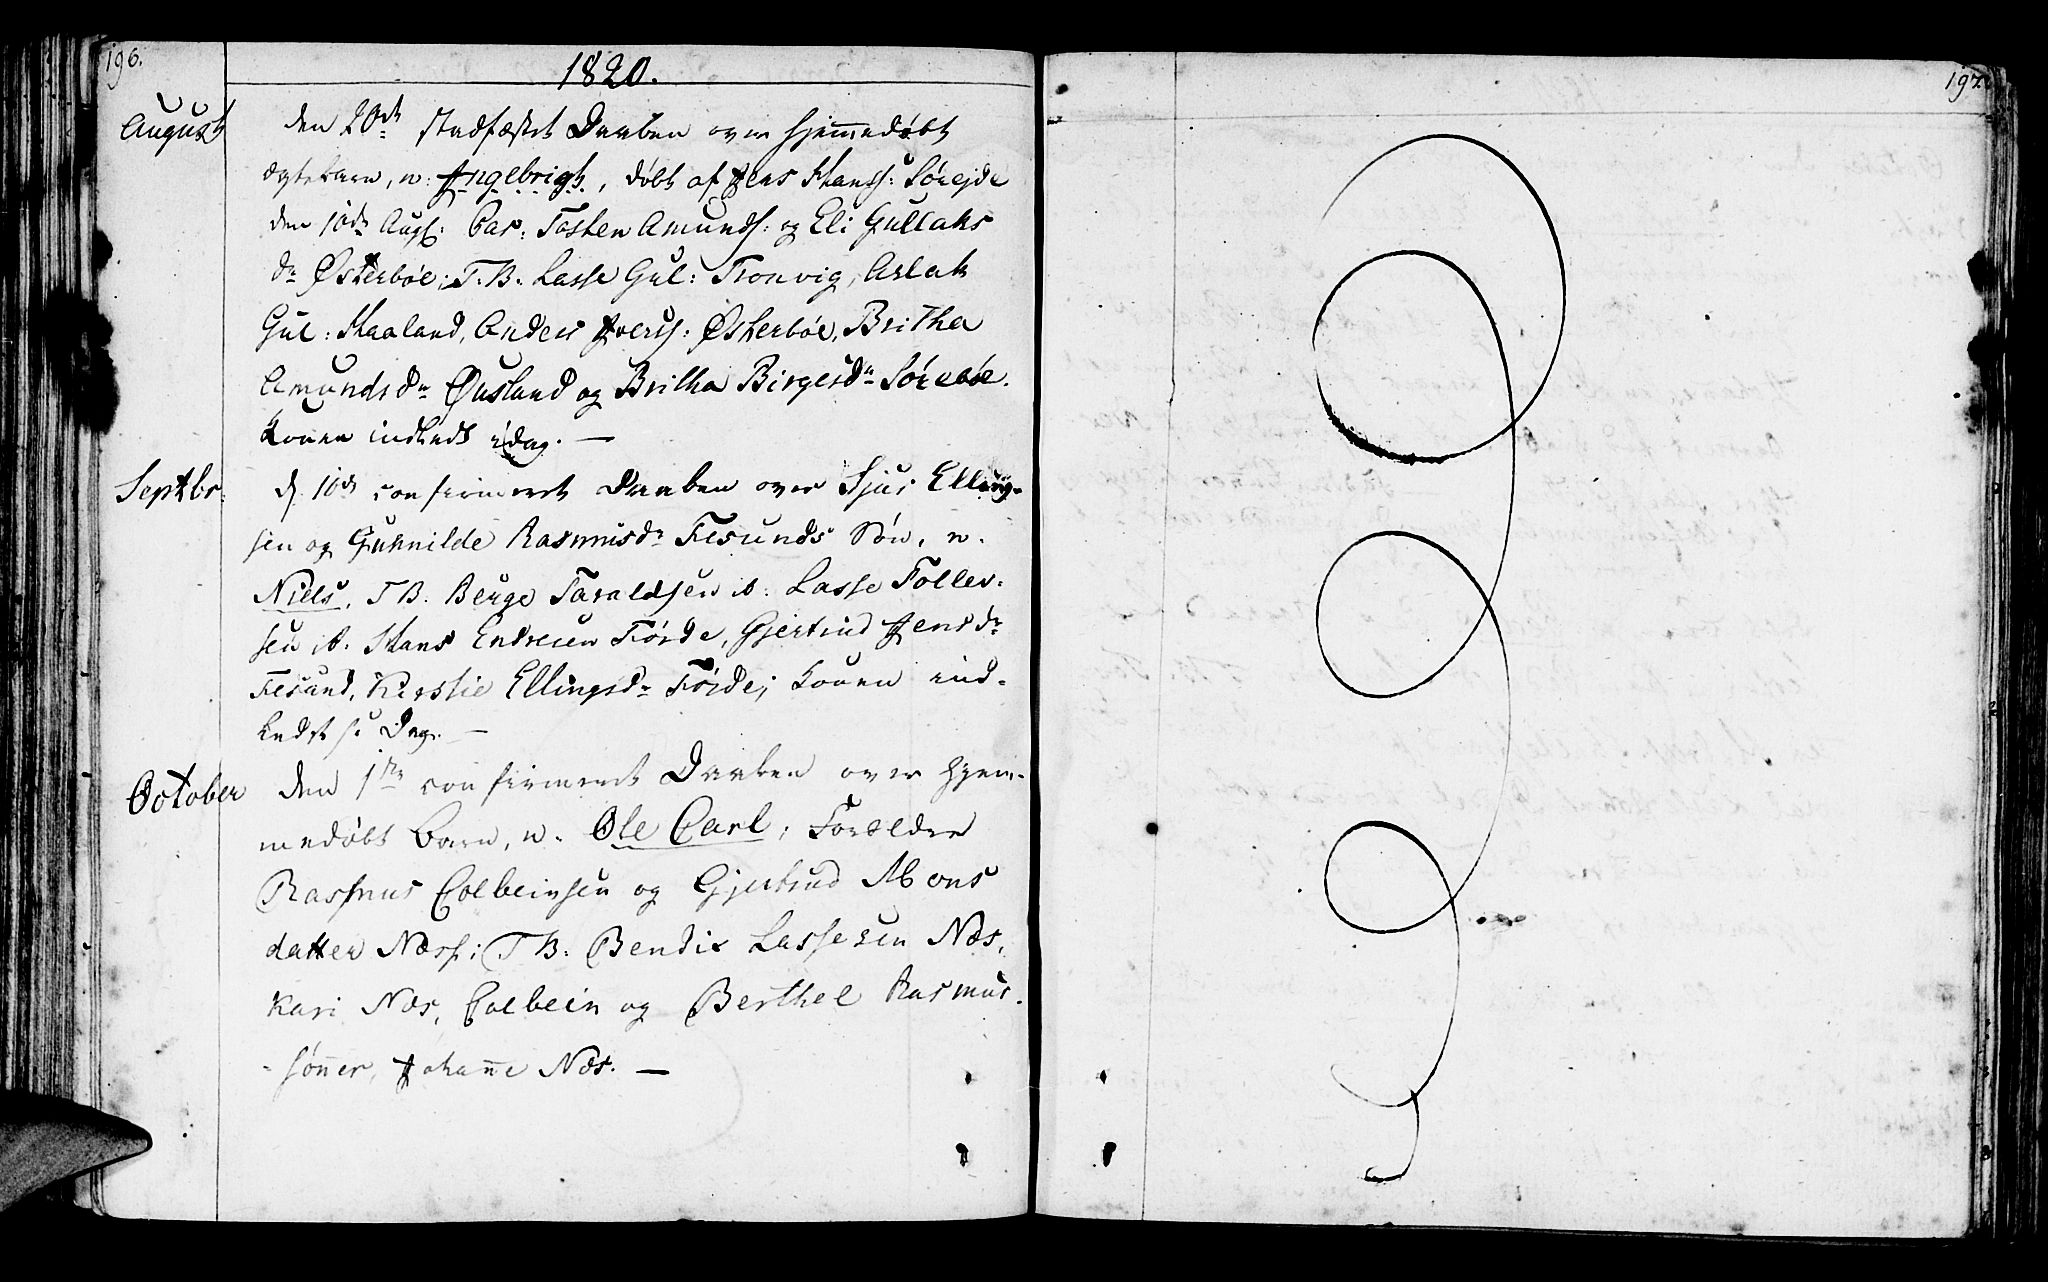 196.
1820.
August
den 20de stadfæstet Daaben over hjemmedøbt
ægtebarn, n: Ingebrigt, døbt af Jens Hanss: Sørejde
den 10de Augs: Par: Tosten Amunds: og Eli Gullaks
dr Østerbøe; T.B. Lasse Gul: Tronvig, Aslak
Gul: Haaland, Anders Iverss: Østerbøe, Britha
Amundsdr Øusland og Britha Birgesdr Sørebøe.
Konen indledt idag. —
Septbr:
d. 10de confirmeret Daaben over Sjur Elling-
sen og Gunnilde Rasmusdr Tresunds Søn, n.
Niels, T B. Berge Taraldsen ib: Lasse Toller-
sen ib. Hans Endresen Førde, Gjertrud Jensdr
Tresund, Kirstie Ellingsdr Førde; Konen ind-
ledt s: Dag. —
October
Den 1ste confirmeret Daaben over hjem-
medøbt Barn, n. Ole Carl; Forældre
Rasmus Colbeinsen og Gjertrud Mons
datter Næss; T B: Bendix Lassesen Næs,
Kari Næs, Colbein og Berthel Rasmus-
-sønner, Johanne Næs. —
197.